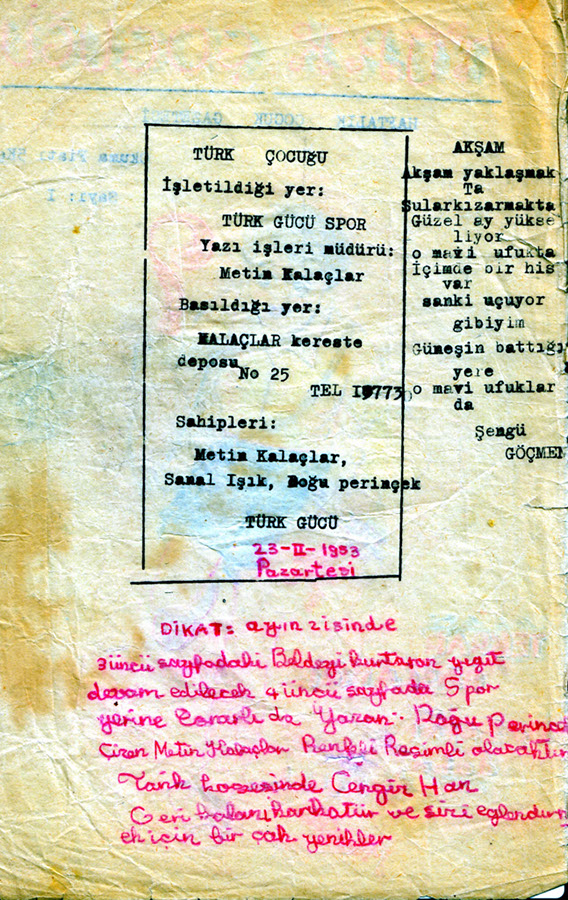 TÜRK ÇOCUĞU
İşletildiği yer:
TÜRK GÜCÜ SPOR
Yazı işleri müdürü:
Metin Kalaçlar
Basıldığı yer:
KALAÇLAR kereste
deposu
No 25
TEL
Sahipleri:
Metin Kalaçlar,
Sanal Işık, Doğu perinçek
TÜRK GÜCÜ
23-II-1953
Pazartesi
AKŞAM
Akşam yaklaşmak
Ta
Sularkızarmakta
Güzel ay yükse
liyor
o mavi ufukta
İçimde bir his
var
sanki uçuyor
gibiyim
Güneşin battığı
yere
o mavi ufuklar
da
Şengü
GÖÇMEN
DİKAT: ayın 2isinde
3üncü sayfadaki Beldeyi kurtaran yiğit
devam edilecek 4üncü sayfada Spor
yerine Esrarlı da Yazan: Doğu Perinçek
Çizen Metin Kalaçlar Renkli Resimli olacaktır
Tarih kösesinde Cengiz Han
Geri kalanı karikatür ve sizi eğlendirm
ek için bir çok yenikler
HAFTALIK ÇOCUK GAZETESİ
Sayı: I